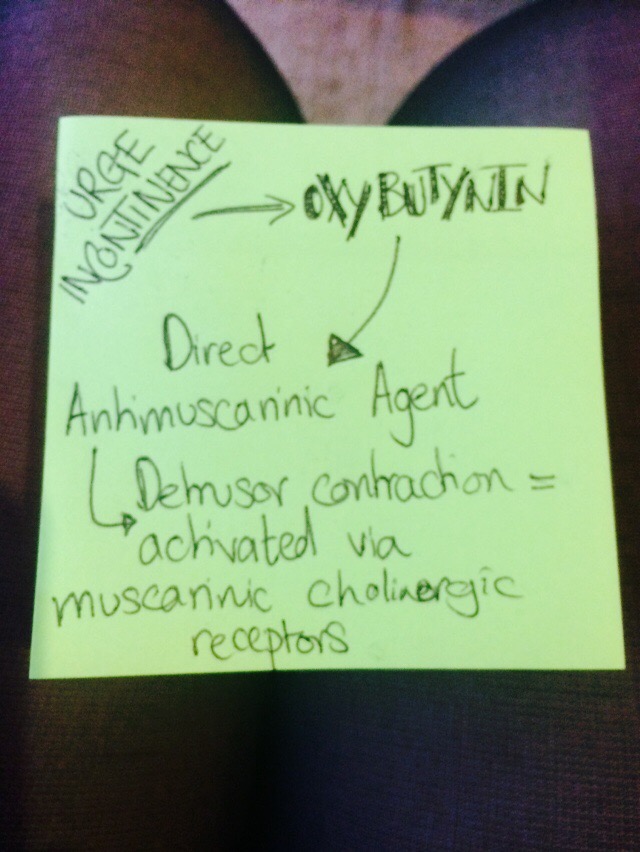 URGE
INCONTINENCE
→ OXYBUTYNIN
Direct
Antimuscarinic Agent
Detrusor contraction =
activated via
muscarinic cholinergic
receptors